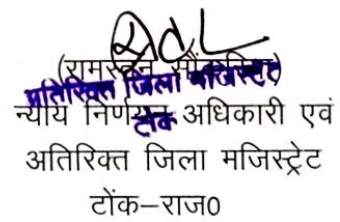 Sd/-
(रामरतन
अतिरिक्त जिला मजिस्ट्रेट
टोंक
न्याय निर्णयन अधिकारी एवं
अतिरिक्त जिला मजिस्ट्रेट
टोंक-राज0